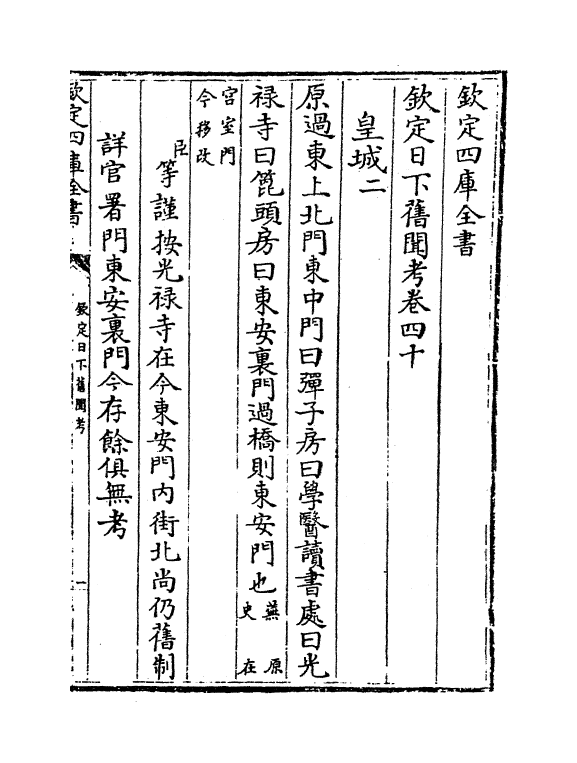 欽定四庫全書
欽定日下舊聞考卷四十
皇城二
原過東上北門東中門曰彈子房曰學醫讀書處曰光
禄寺曰篦頭房曰東安裏門過橋則東安門也蕪史 原在
宫室門今移改
臣等謹按光禄寺在今東安門内街北尚仍舊制
詳官署門東安裏門今存餘俱無考
欽定四庫全書
欽定日下舊聞考
一